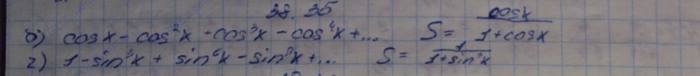 38.35
б) cosx - cos²x - cos³x - cos⁴x + ... S = cosx / 1+cosx
г) 1 - sin³x + sin⁶x - sin⁹x + ... S = 1 / 1+sin³x